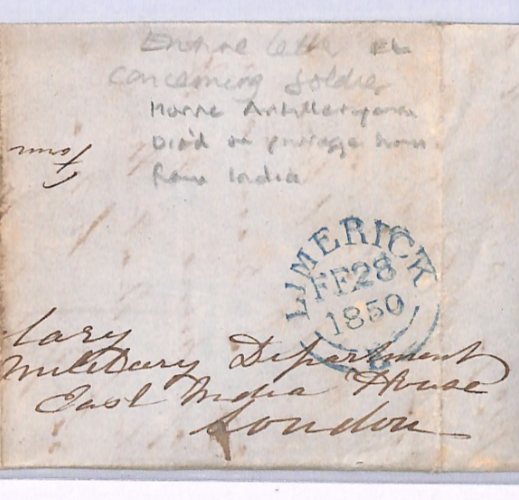 Entire letter
Concerning Soldier
Horse Artilleryman
Died on passage home
From India
Form
LIMERICK
FE28
1850
tary
Military Department
East India House
London